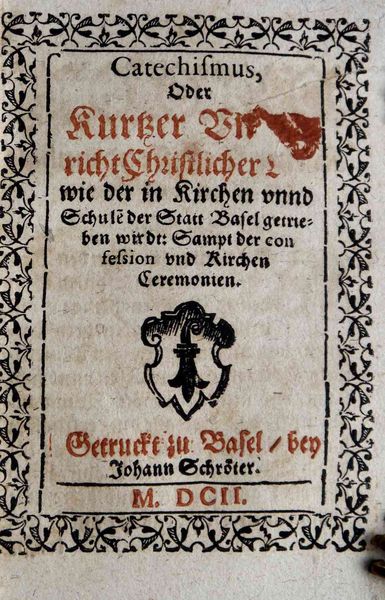 Catechiſmus,
Oder
Kurtzer Vn
richt Chriſtlicher
wie der in Kirchen vnnd
Schulẽ der Statt Baſel getrie-
ben wirdt: Sampt der con
feſsion vnd Kirchen
Ceremonien.
Getruckt zu Baſel / bey
Johann Schröter.
M. DCII.